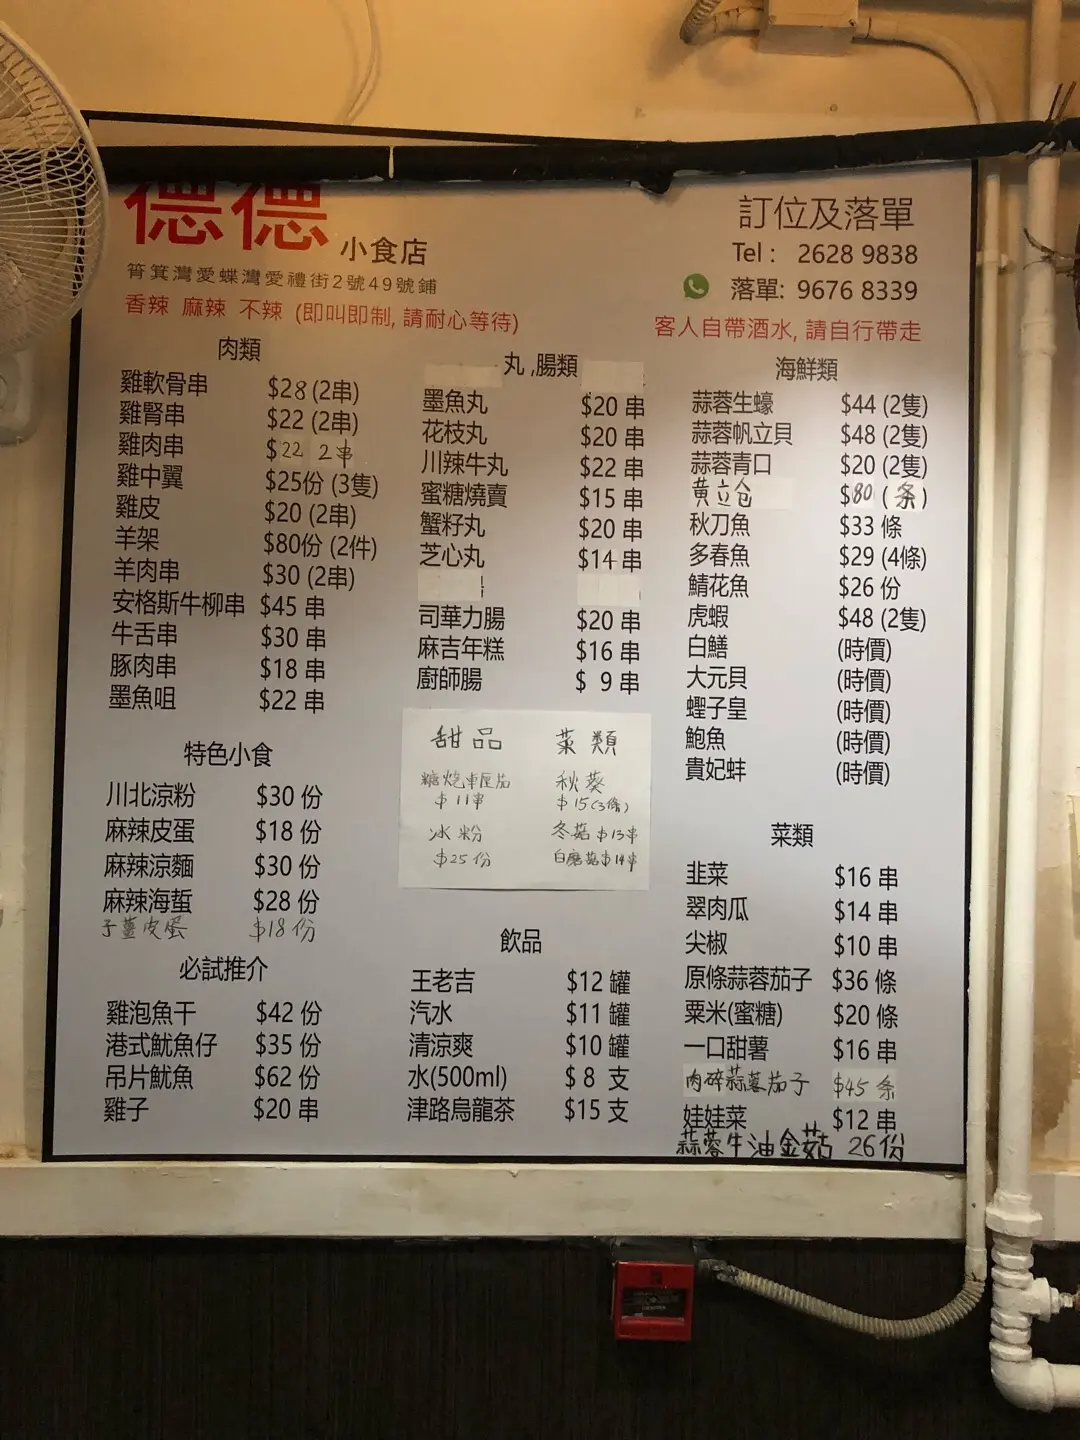 德德 小食店
筲箕灣愛蝶灣愛禮街2號49號鋪
香辣 麻辣 不辣 (即叫即制, 請耐心等待)
訂位及落單
Tel : 2628 9838
落單: 9676 8339
客人自帶酒水, 請自行帶走
肉類
雞軟骨串 $28 (2串)
雞腎串 $22 (2串)
雞肉串 $22 2串
雞中翼 $25份 (3隻)
雞皮 $20 (2串)
羊架 $80份 (2件)
羊肉串 $30 (2串)
安格斯牛柳串 $45 串
牛舌串 $30 串
豚肉串 $18 串
墨魚咀 $22 串
特色小食
川北涼粉 $30 份
麻辣皮蛋 $18 份
麻辣涼麵 $30 份
麻辣海蜇 $28 份
子薑皮蛋 $18份
必試推介
雞泡魚干 $42 份
港式魷魚仔 $35 份
吊片魷魚 $62 份
雞子 $20 串
丸 ,腸類
墨魚丸 $20 串
花枝丸 $20 串
川辣牛丸 $22 串
蜜糖燒賣 $15 串
蟹籽丸 $20 串
芝心丸 $14 串
司華力腸 $20 串
麻吉年糕 $16 串
廚師腸 $ 9 串
甜品
$11串
冰粉
$25份
菜類
秋葵
$15(3條)
冬菇 $13串
白磨菇 $14串
飲品
王老吉 $12 罐
汽水 $11 罐
清涼爽 $10 罐
水(500ml) $ 8 支
津路烏龍茶 $15 支
海鮮類
蒜蓉生蠔 $44 (2隻)
蒜蓉帆立貝 $48 (2隻)
蒜蓉青口 $20 (2隻)
黄立仓 $80 (条)
秋刀魚 $33 條
多春魚 $29 (4條)
鯖花魚 $26 份
虎蝦 $48 (2隻)
白鱔 (時價)
大元貝 (時價)
蟶子皇 (時價)
鮑魚 (時價)
貴妃蚌 (時價)
菜類
韭菜 $16 串
翠肉瓜 $14 串
尖椒 $10 串
原條蒜蓉茄子 $36 條
粟米(蜜糖) $20 條
一口甜薯 $16 串
肉碎蒜蓉茄子 $45 条
娃娃菜 $12 串
蒜蓉牛油金菇 26份